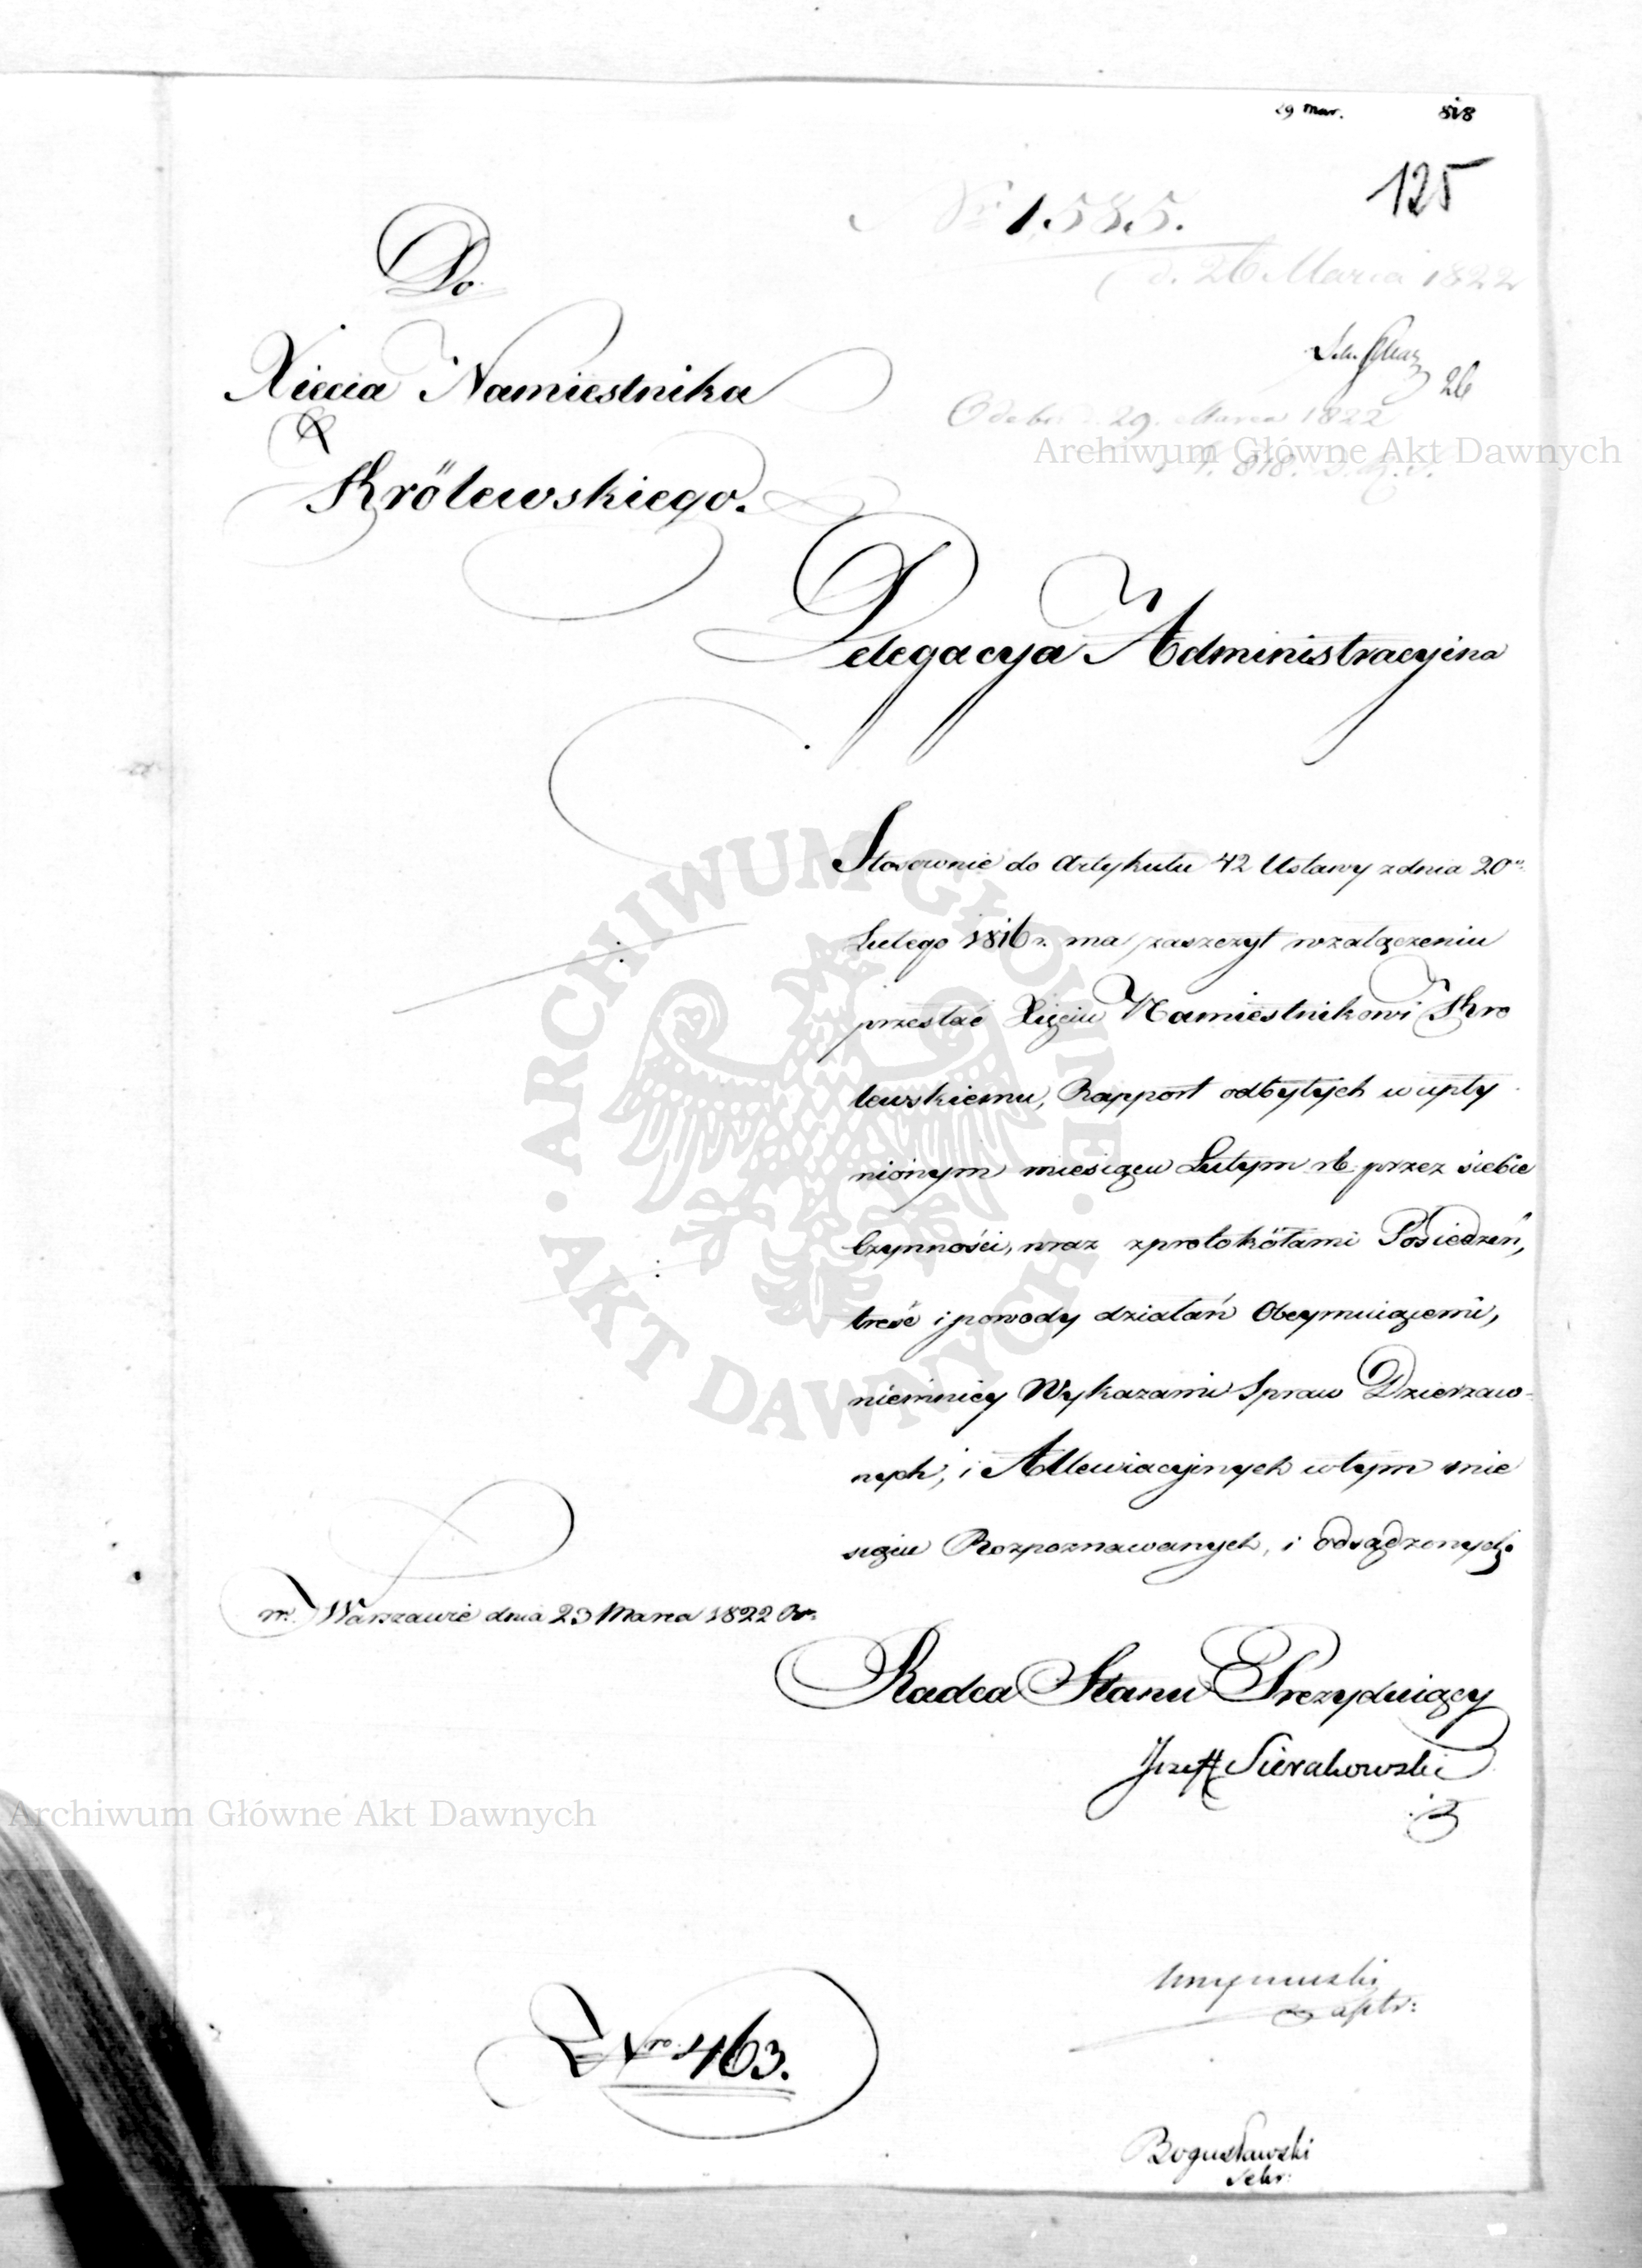 29 Mar. 818
125
Nr 1585.
d. 26 Marca 1822
26
Do
Xięcia Namiestnika
Królewskiego.
Odebr. d. 29. Marca 1822
Archiwum Główne Akt Dawnych
N. 818.
Delegacya Administracyina
Stosownie do Artykułu 42 Ustawy zdnia 20o
Lutego 1816 r. ma zaszczyt wzałączeniu
przesłać Xięciu Namiestnikowi Kro
lewskiemu, Rapport odbytych w upły
nionym miesiącu Lutym rb. przez siebie
Czynności, wraz zprotokółami Posiedzeń,
treść i powody działań Obeymuiącemi,
niemniey Wykazami Spraw Dzierzaw-
nych, i Allewiacyinych wtym mie
siącu Rozpoznawanych, i odsądzonych.
ARCHIWUM GŁÓWNE AKT DAWNYCH
w Warszawie dnia 23 Marca 1822 Or.
Radca Stanu Prezyduiący
Józeff Sierakowski
Archiwum Główne Akt Dawnych
Nro 463.
Bogusławski
Sekr: